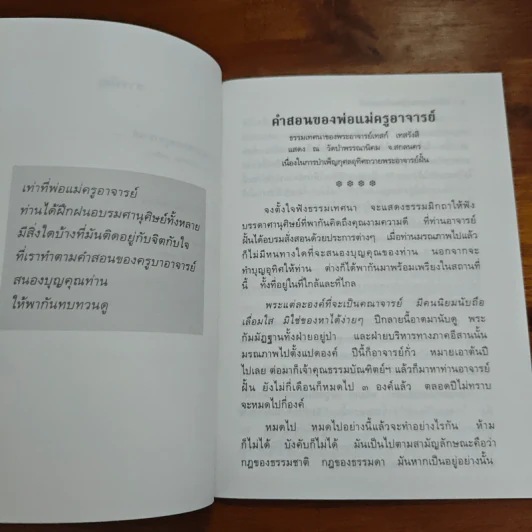 เท่าที่พ่อแม่ครูอาจารย์
ท่านได้ฝึกฝนอบรมศานุศิษย์ทั้งหลาย
มีสิ่งใดบ้างที่มันติดอยู่กับจิตกับใจ
ที่เราทำตามคำสอนของครูบาอาจารย์
สนองบุญคุณท่าน
ให้พากันทบทวนดู
คำสอนของพ่อแม่ครูอาจารย์
ธรรมเทศนาของพระอาจารย์เทสก์ เทสรังสี
แสดง ณ วัดป่าพรรณานิคม จ.สกลนคร
เนื่องในการบำเพ็ญกุศลอุทิศถวายพระอาจารย์ฝั้น
จงตั้งใจฟังธรรมเทศนา จะแสดงธรรมมิกถาให้ฟัง
บรรดาศานุศิษย์ที่พากันคิดถึงคุณงามความดี ที่ท่านอาจารย์
ฝั้นได้อบรมสั่งสอนด้วยประการต่างๆ เมื่อท่านมรณภาพไปแล้ว
ก็ไม่มีหนทางใดที่จะสนองบุญคุณของท่าน นอกจากจะ
ทำบุญอุทิศให้ท่าน ต่างก็ได้พากันมาพร้อมเพรียงในสถานที่
นี้ ทั้งที่อยู่ในที่ใกล้และที่ไกล
พระแต่ละองค์ที่จะเป็นคณาจารย์ มีคนนิยมนับถือ
เลื่อมใส มิใช่ของหาได้ง่ายๆ ปีกลายนี้อาตมานับดู พระ
กัมมัฏฐานทั้งฝ่ายอยู่ป่า และฝ่ายบริหารทางภาคอีสานนั้น
มรณภาพไปตั้งแปดองค์ ปีนี้ก็อาจารย์กั่ว หมายเอาต้นปี
ไปเลย ต่อมาก็เจ้าคุณธรรมบัณฑิตย์ฯ แล้วก็มาหาท่านอาจารย์
ฝั้น ยังไม่กี่เดือนก็หมดไป ๓ องค์แล้ว ตลอดปีไม่ทราบ
จะหมดไปกี่องค์
หมดไป หมดไปอย่างนี้แล้วจะทำอย่างไรกัน ห้าม
ก็ไม่ได้ บังคับก็ไม่ได้ มันเป็นไปตามสามัญลักษณะคือว่า
กฎของธรรมชาติ กฎของธรรมดา มันหากเป็นอยู่อย่างนั้น